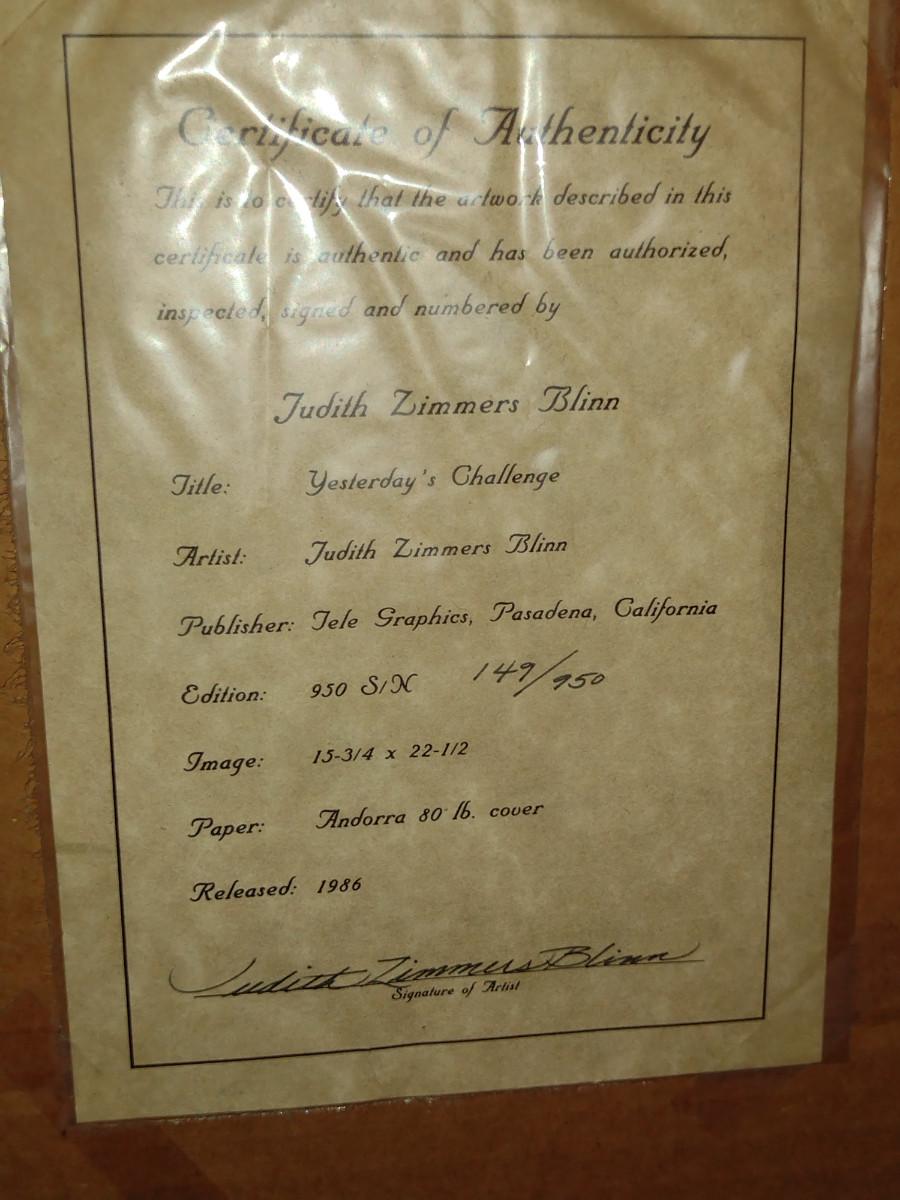 Certificate of Authenticity
This is to certify that the artwork described in this
certificate is authentic and has been authorized,
inspected, signed and numbered by
Judith Zimmers Blinn
Title: Yesterday's Challenge
Artist: Judith Zimmers Blinn
Publisher: Tele Graphics, Pasadena, California
Edition: 950 S/N 149/950
Image: 15-3/4 x 22-1/2
Paper: Andorra 80 lb. cover
Released: 1986
Judith Zimmers Blinn
Signature of Artist